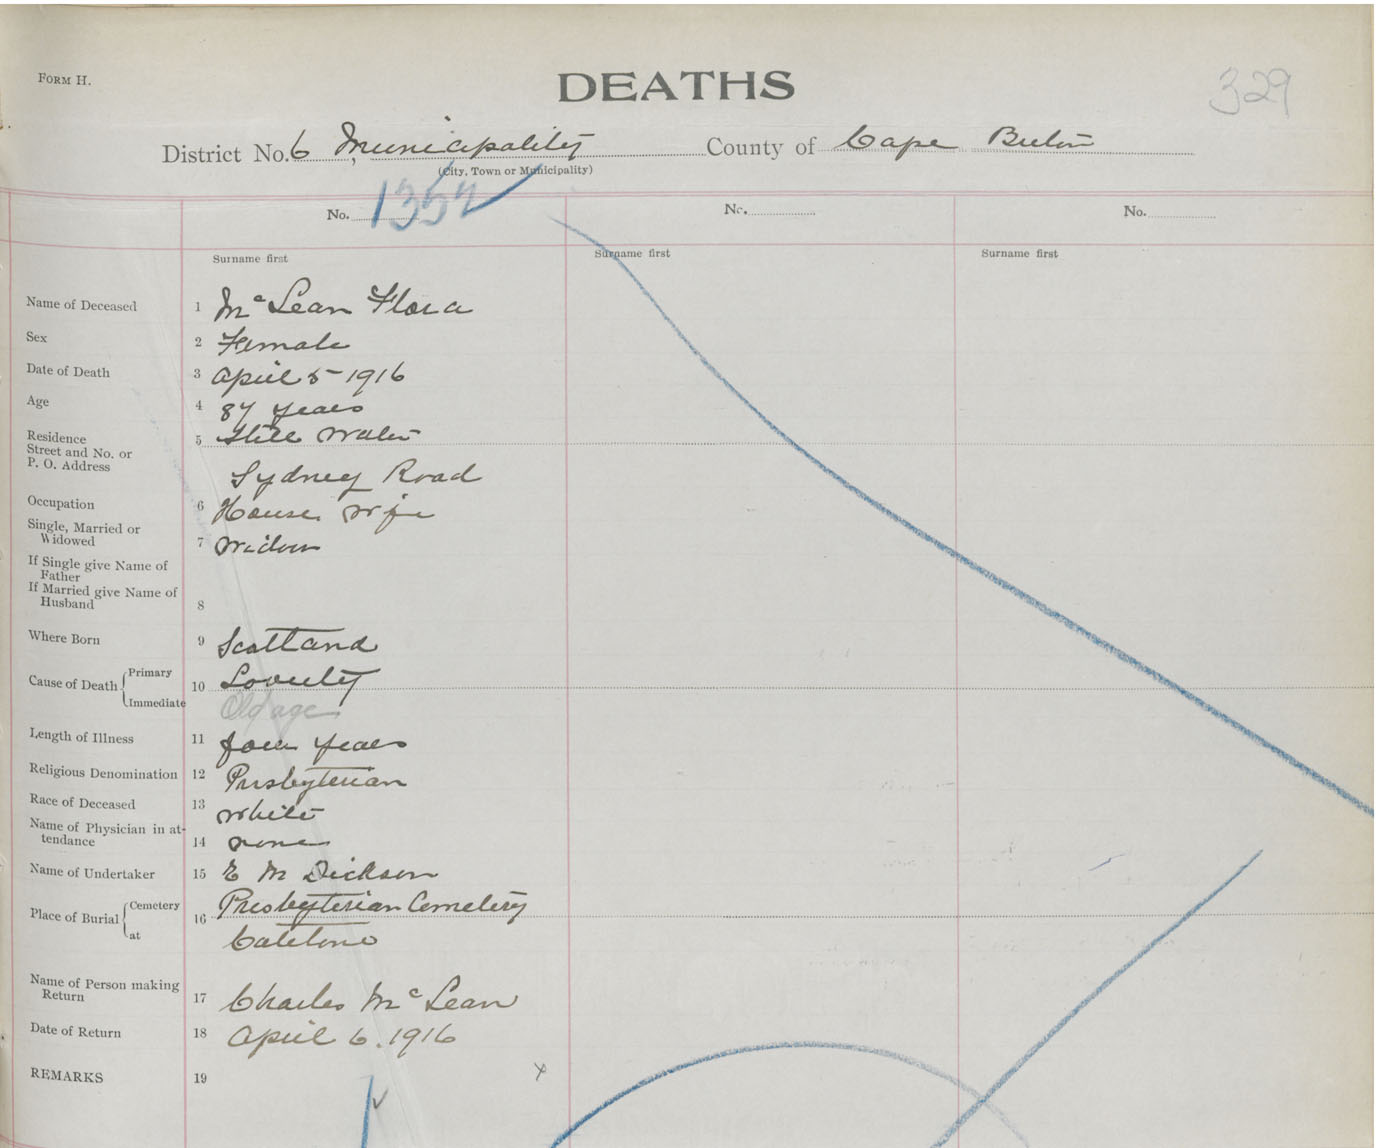 FORM H.
DEATHS
329
District No. 6 Municipality County of Cape Breton
(City, Town or Municipality)
No. 1352 No. No.
Surname first Surname first Surname first
Name of Deceased 1 Mc Lean Flora
Sex 2 Female
Date of Death 3 April 5 - 1916
Age 4 87 years
Residence
Street and No. or
P. O. Address
5 Still Water
Sydney Road
Occupation 6 House Wife
Single, Married or
Widowed
7 Widow
If Single give Name of
Father
If Married give Name of
Husband
8
Where Born 9 Scotland
Cause of Death Primary
Immediate
10
Old age
Length of Illness 11 four years
Religious Denomination 12 Presbyterian
Race of Deceased 13 White
Name of Physician in at-
tendance
14 none
Name of Undertaker 15 E M Dickson
Place of Burial Cemetery
at
16 Presbyterian Cemetery
Catelone
Name of Person making
Return
17 Charles Mc Lean
Date of Return 18 April 6. 1916
REMARKS 19